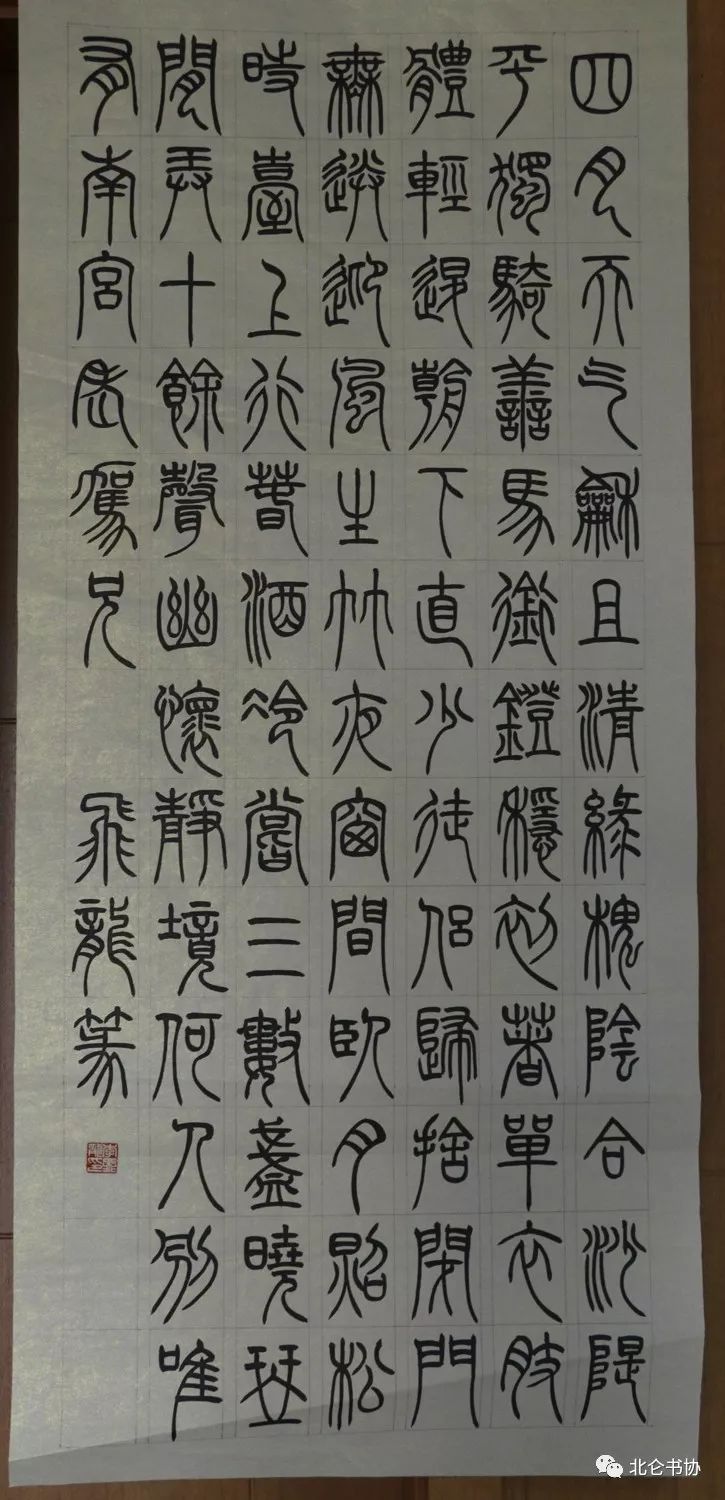 四月天气龢且清綠槐陰合沙隄
平獨騎善馬銜鐙穩初著單衣肢
體輕退朝下直少徒侶歸捨閉門
無送迎風生竹夜窗間臥月照松
時臺上行春酒冷嘗三數盞曉琴
閒弄十餘聲幽懷靜境何人別唯
有南宮老駕兄 飛龍篆
北仑书协